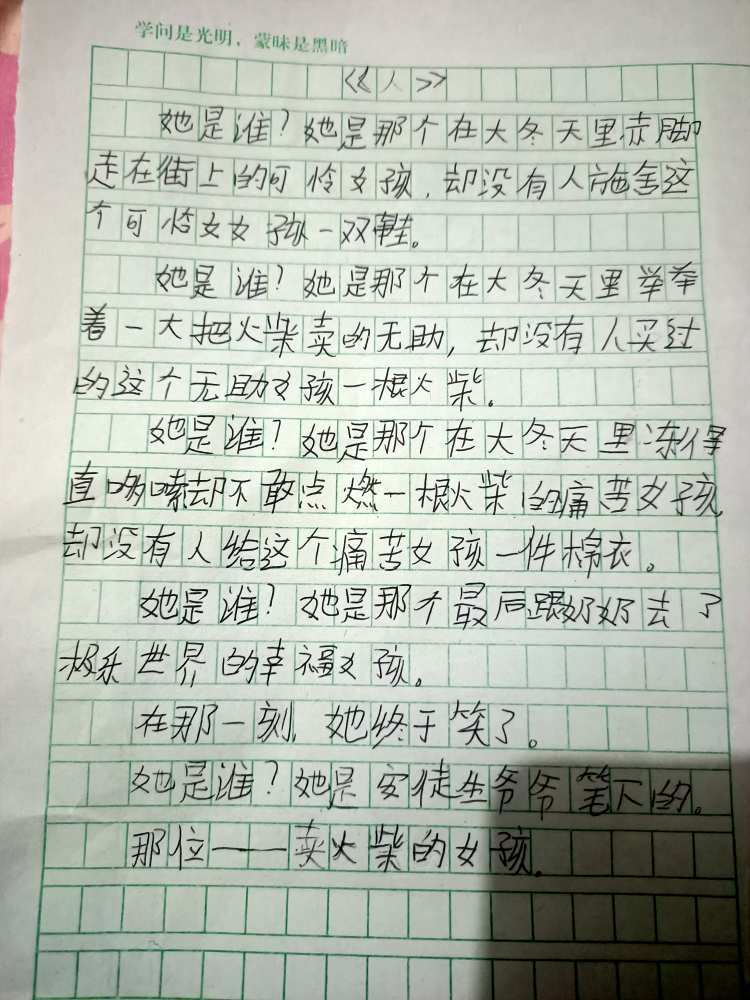 学问是光明，蒙昧是黑暗
《人》
她是谁？她是那个在大冬天里赤脚
走在街上的可怜女孩，却没有人施舍这
个可怜女女孩一双鞋。
她是谁？她是那个在大冬天里举举
着一大把火柴卖的无助，却没有人买过
的这个无助女孩一根火柴。
她是谁？她是那个在大冬天里冻得
直哆嗦却不敢点燃一根火柴的痛苦女孩，
却没有人给这个痛苦女孩一件棉衣。
她是谁？她是那个最后跟奶奶去了
极乐世界的幸福女孩。
在那一刻，她终于笑了。
她是谁？她是安徒生爷爷笔下的。
那位——卖火柴的女孩。